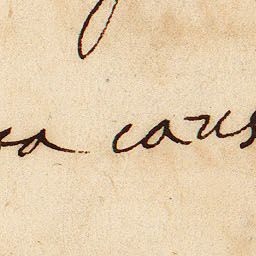 ca caus